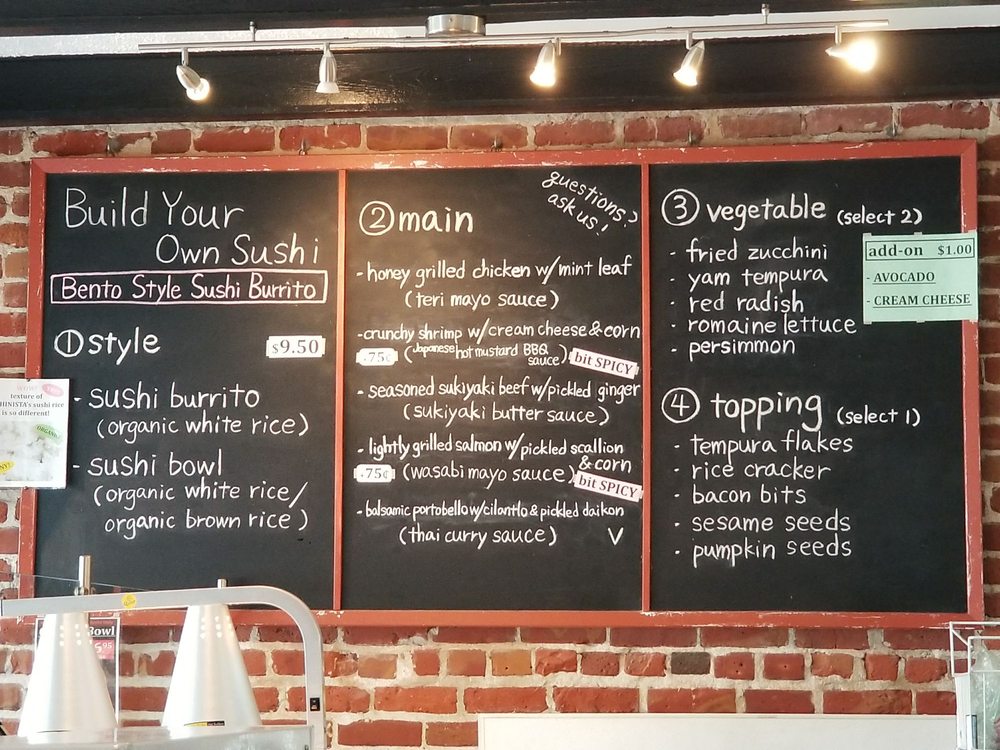 Build Your
Own Sushi
Bento Style Sushi Burrito
① style
$9.50
- sushi burrito
(organic white rice)
- sushi bowl
(organic white rice/
organic brown rice)
texture of
HINISTA's sushi rice
is so different!
ORGANIC
② main
questions?
ask us!
- honey grilled chicken w/mint leaf
(teri mayo sauce)
- crunchy shrimp w/cream cheese & corn
.75¢ (Japanese hot mustard BBQ
sauce) bit SPICY
- seasoned sukiyaki beef w/pickled ginger
(sukiyaki butter sauce)
- lightly grilled salmon w/pickled scallion
& corn
.75¢ (wasabi mayo sauce) bit SPICY
- balsamic portobello w/cilantlo & pickled daikon
(thai curry sauce) V
③ vegetable (select 2)
- fried zucchini
· yam tempura
· red radish
· romaine lettuce
· persimmon
add-on $1.00
- AVOCADO
- CREAM CHEESE
④ topping (select 1)
· tempura flakes
· rice cracker
· bacon bits
· sesame seeds
· pumpkin seeds
Bowl